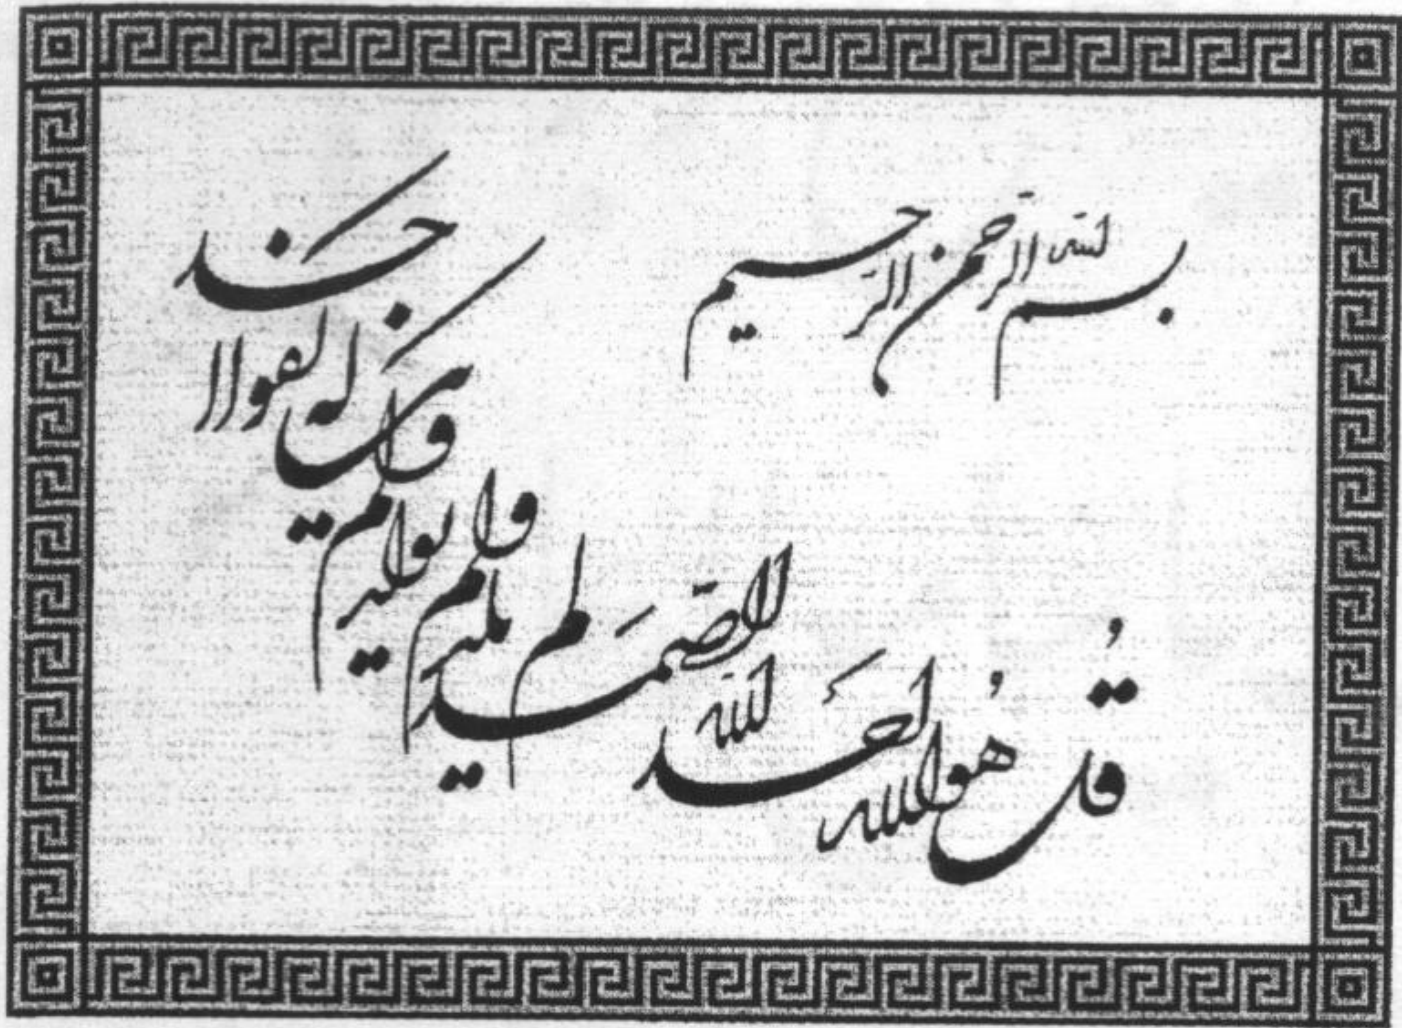 بسم الله الرحمن الرحيم
قُل هُوالله احَد الله الصّمَد لم يلد ولم يولد ولم يكن له كفوا احد